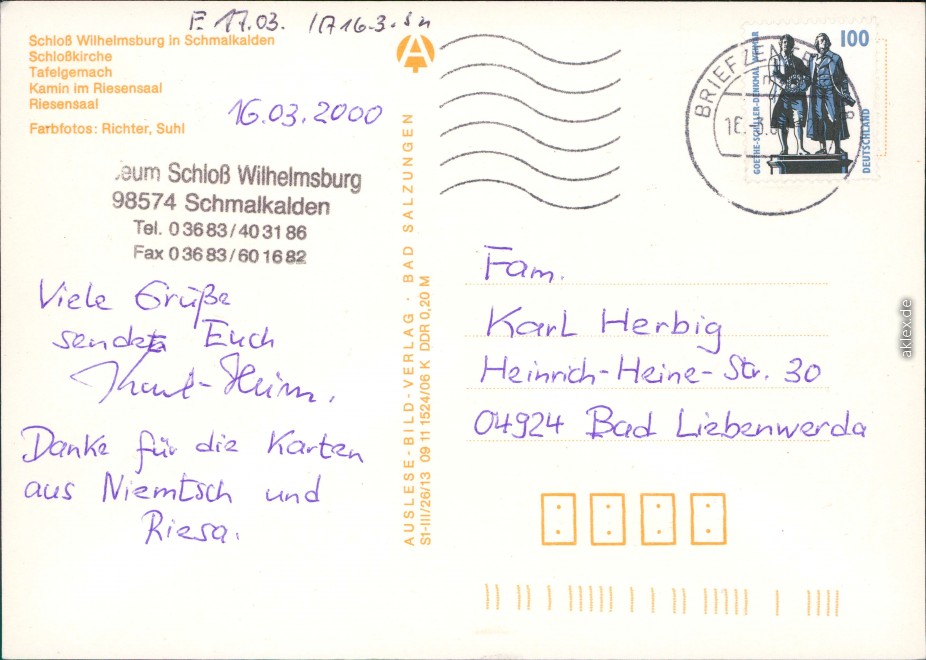 E 17.03.
Schloß Wilhelmsburg in Schmalkalden
Schloßkirche
Tafelgemach
Kamin im Riesensaal
Riesensaal
Farbfotos: Richter, Suhl
16.03.2000
eum Schloß Wilhelmsburg
98574 Schmalkalden
Tel. 03683/403186
Fax 03683/601682
Viele Grüße
sendet Euch
Danke für die Karten
aus Niemtsch und
Riesa.
AUSLESE-BILD-VERLAG · BAD SALZUNGEN
S1-III/26/13 09 11 1524/06 K DDR 0,20 M
BRIEFZEN
100
GOETHE-SCHILLER-DENKMAL WEIMAR
DEUTSCHLAND
Fam.
Karl Herbig
Heinrich-Heine-Str. 30
04924 Bad Liebenwerda
aklex.de